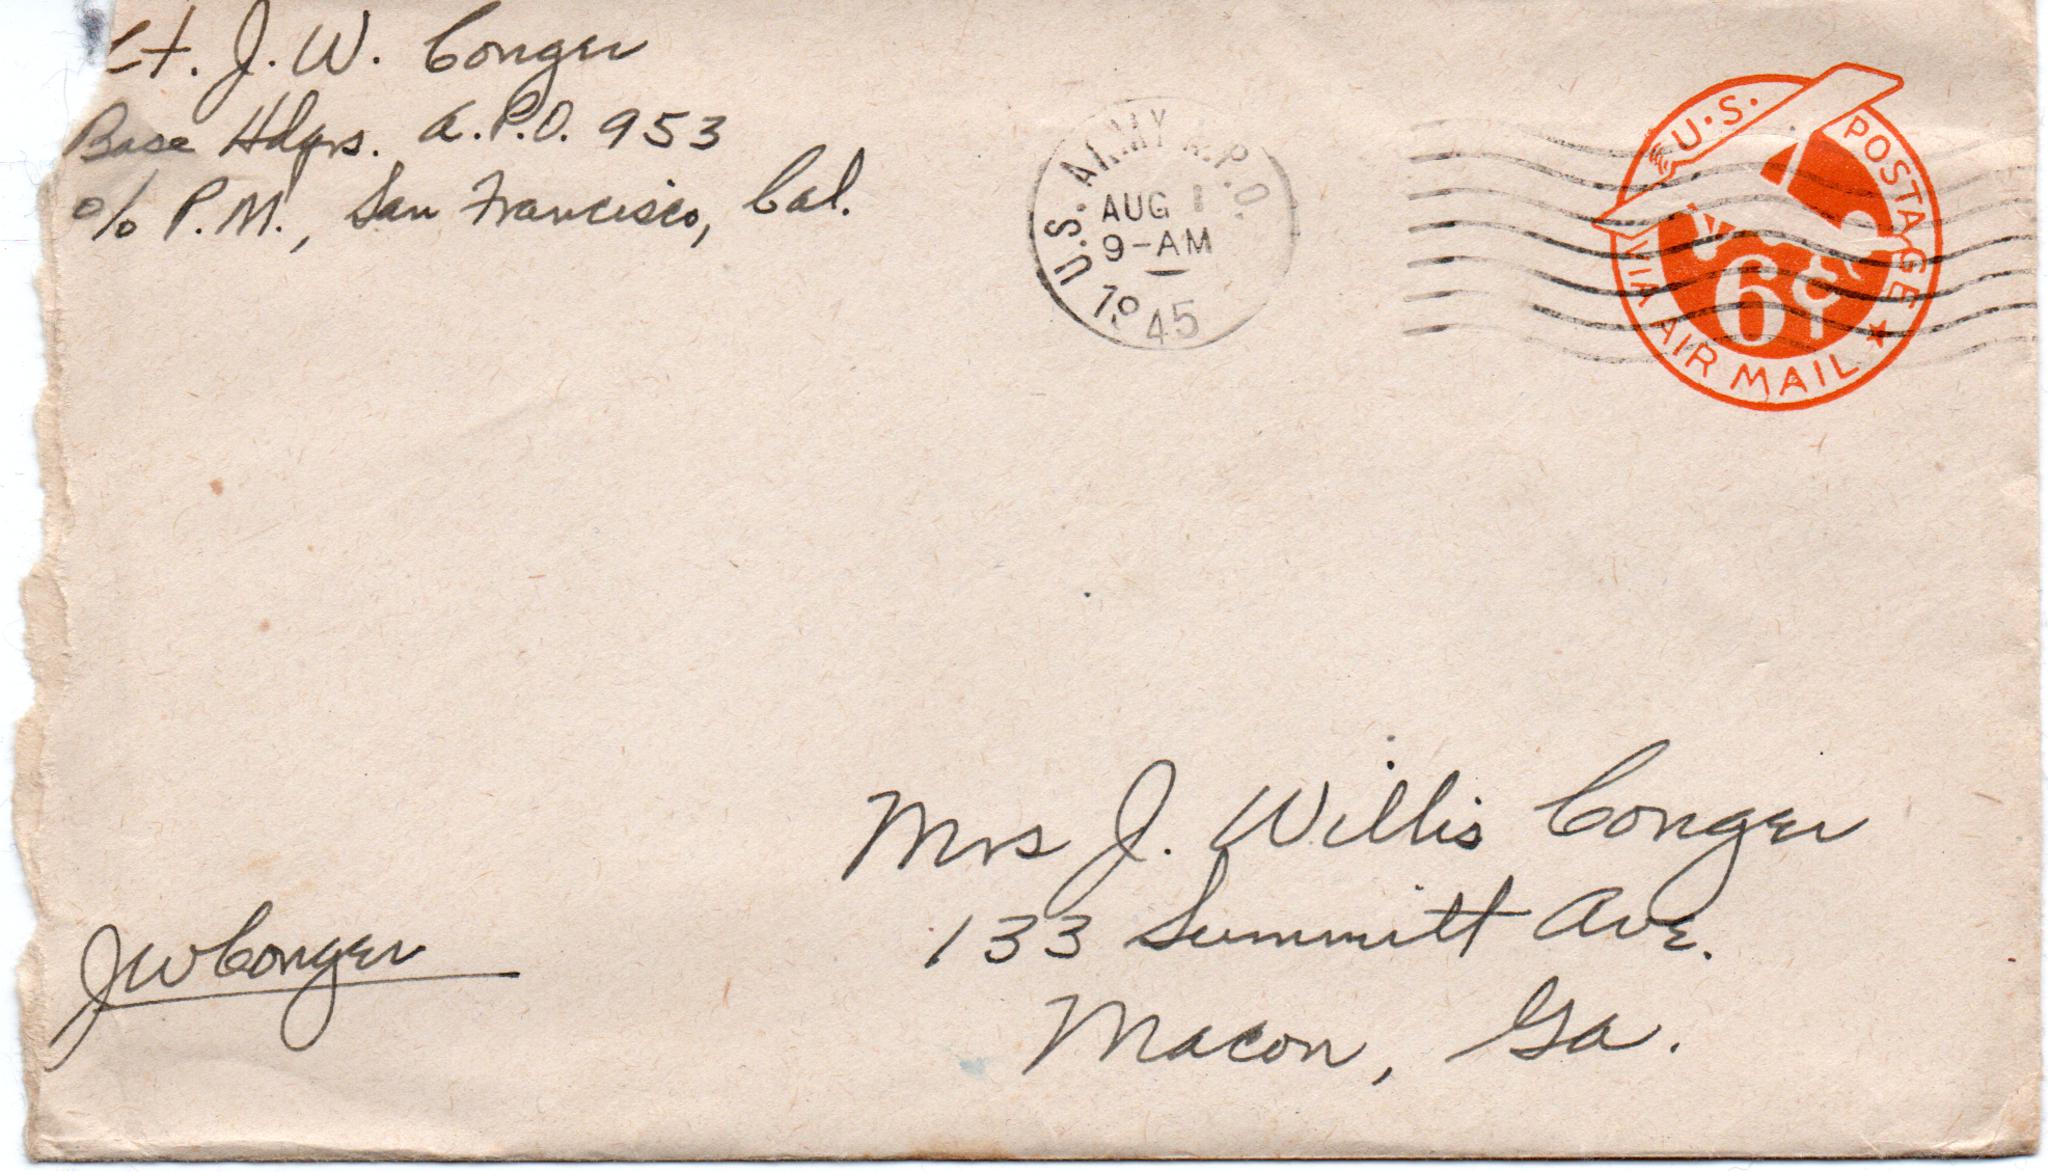 Lt. J. W. Conger
Base Hdqrs. A.P.O. 953
c/o P.M., San Francisco, Cal.
U.S. ARMY A.P.O.
AUG 1
9-AM
1945
U.S. POSTAGE
6¢
VIA AIR MAIL
Mrs J. Willis Conger
133 Summitt Ave.
Macon, Ga.
JWConger